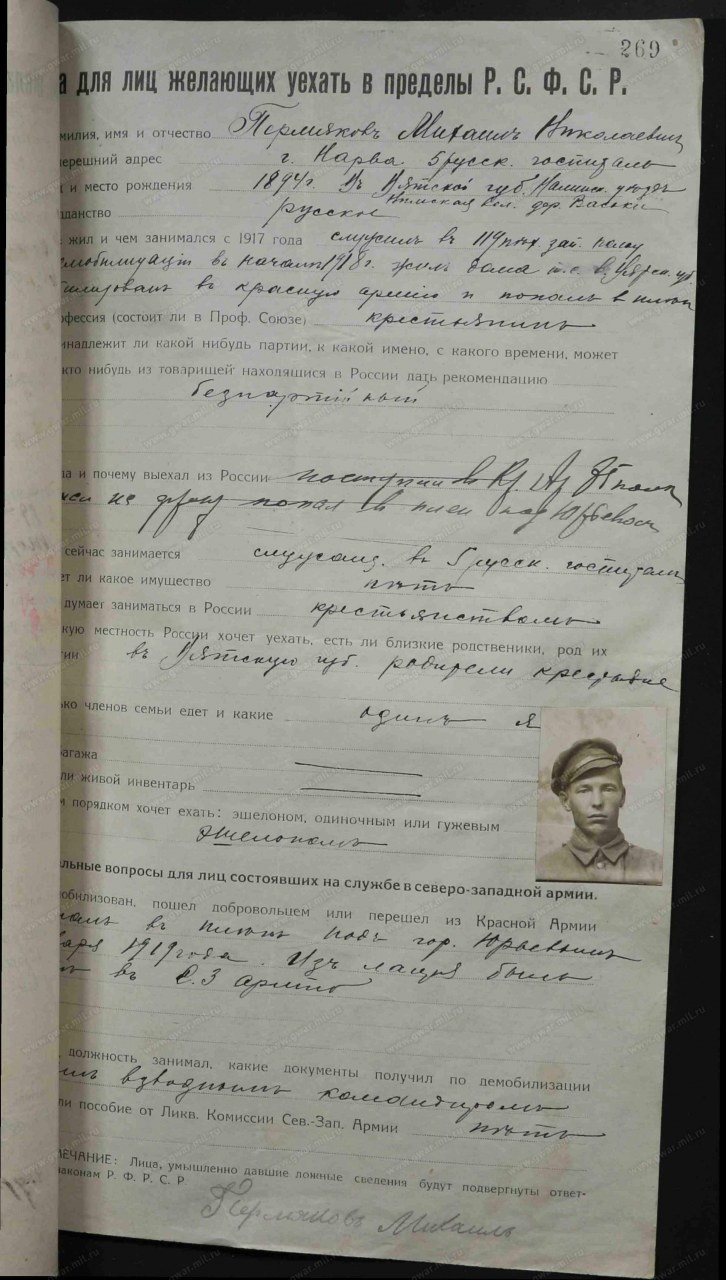 269
а для лиц желающих уехать в пределы Р. С. Ф. С. Р.
амилия, имя и отчество Пермяковъ Михаилъ Николаевичъ
перешний адрес г. Нарва. 5 русск. госпиталь
и место рождения 1894 г. Въ Вятской губ. уездъ
данство русское вол. дер. Васьки
жил и чем занимался с 1917 года служилъ въ 119 пех. зап. полку
въ начале 1918 г. жилъ дома т.е. въ Вятск. губ.
въ красную армию и попалъ в пленъ
офессия (состоит ли в Проф. Союзе) крестьянинъ
инадлежит ли какой нибудь партии, к какой имено, с какого времени, может
кто нибудь из товарищей находящися в России дать рекомендацию
безпартійный
да и почему выехал из России поступил в Кр. Ар.
на фронт попал в плен под Юрьевом
сейчас занимается служащ. въ 5 русск. госпиталь
ет ли какое имущество нѣтъ
думает заниматься в России крестьянствомъ
кую местность России хочет уехать, есть ли близкие родственики, род их
тии въ Вятскую губ. родители крестьяне
ько членов семьи едет и какие одинъ я
агажа
ли живой инвентарь
м порядком хочет ехать: эшелоном, одиночным или гужевым
эшелономъ
льные вопросы для лиц состоявших на службе в северо-западной армии.
обилизован, пошел добровольцем или перешел из Красной Армии
палъ въ пленъ подъ гор. Юрьевымъ
варя 1919 года. Изъ лагеря былъ
въ С.З армію
должность занимал, какие документы получил по демобилизации
взводнымъ командиромъ
ли пособие от Ликв. Комиссии Сев.-Зап. Армии нѣтъ
МЕЧАНИЕ: Лица, умышленно давшие ложные сведения будут подвергнуты ответ-
законам Р. Ф. Р. С. Р
Пермяковъ Михаилъ
www.gwar.mil.ru